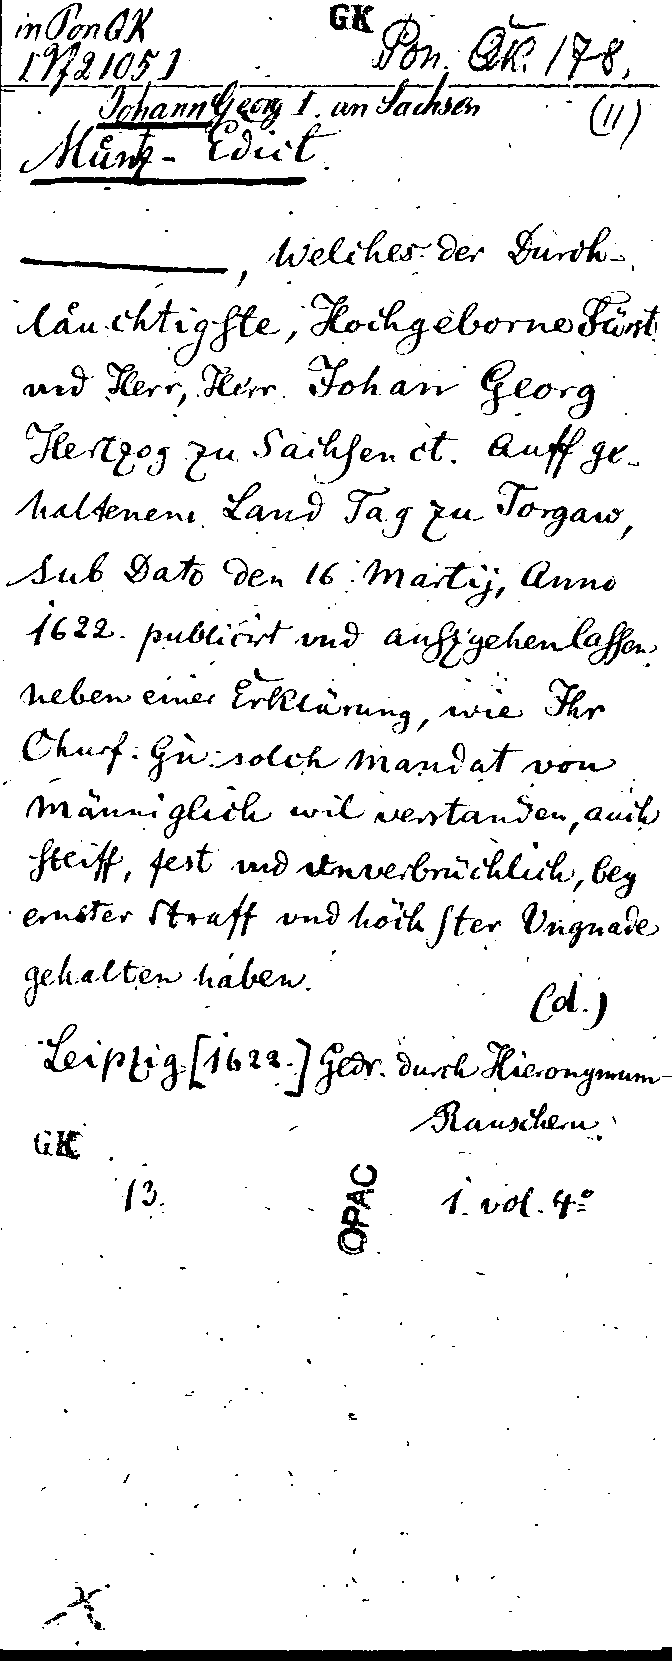 in Pon QK
GK
Pon. QK. 178.
Johann Georg I. von Sachsen
(11)
Müntz - Edict.
, Welches der Durch-
läuchtigste, Hochgeborne Fürst
vnd Herr, Herr Johan Georg
Hertzog zu Sachsen ct. Auff ge-
haltenem Land Tag zu Torgaw,
sub Dato den 16 Martij, Anno
1622. publicirt vnd auszgehen lassen
neben einer Erklärung, wie Ihr
Churf. Gn. solch Mandat von
Männiglich wil verstanden, auch
steiff, fest vnd vnverbrüchlich, bey
ernster Straff vnd höchster Vngnade
gehalten haben.
(d.)
Leipzig [1622.] Gedr. durch Hieronymum
Rauschern.
GK
13.
OPAC
1. vol. 4°